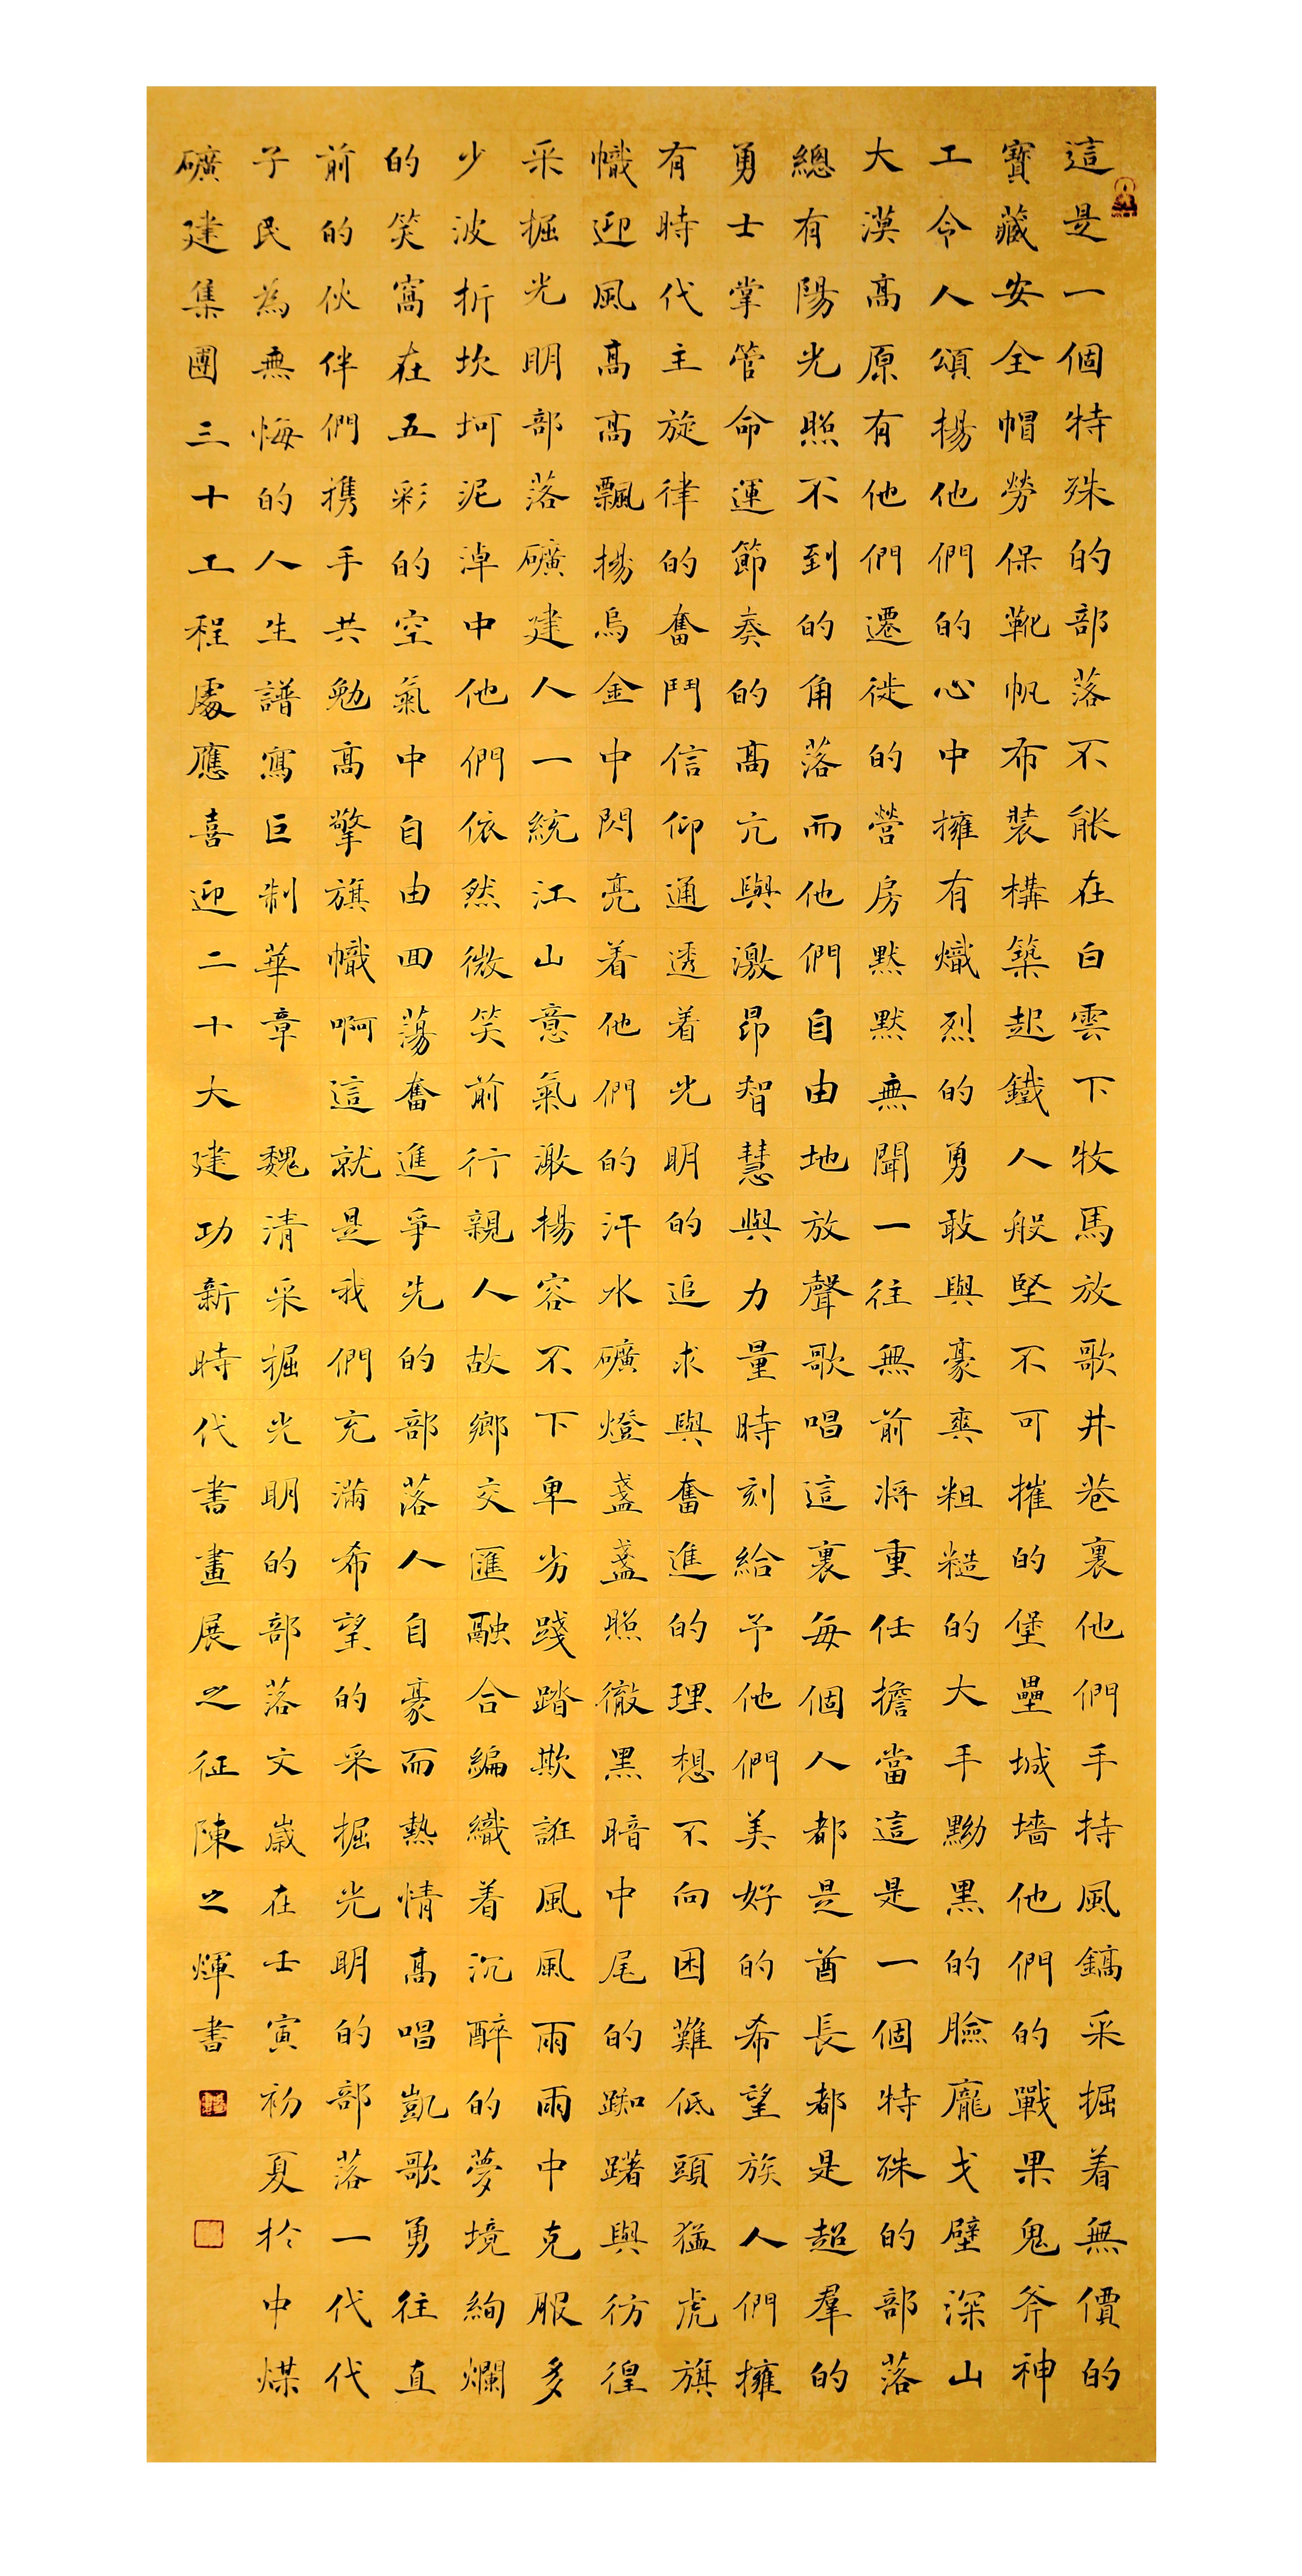 這是一個特殊的部落不能在白雲下牧馬放歌井巷裏他們手持風鎬采掘着無價的
寶藏安全帽勞保靴帆布裝構築起鐵人般堅不可摧的堡壘城墻他們的戰果鬼斧神
工令人頌揚他們的心中擁有熾烈的勇敢與豪爽粗糙的大手黝黑的臉龐戈壁深山
大漠高原有他們遷徙的營房默默無聞一往無前將重任擔當這是一個特殊的部落
總有陽光照不到的角落而他們自由地放聲歌唱這裏每個人都是酋長都是超羣的
勇士掌管命運節奏的高亢與激昂智慧與力量時刻給予他們美好的希望族人們擁
有時代主旋律的奮鬥信仰通透着光明的追求與奮進的理想不向困難低頭猛虎旗
幟迎風高高飄揚烏金中閃亮着他們的汗水礦燈盞盞照徹黑暗中尾的踟躇與彷徨
采掘光明部落礦建人一統江山意氣激揚容不下卑劣踐踏欺誑風風雨雨中克服多
少波折坎坷泥淖中他們依然微笑前行親人故鄉交匯融合編織着沉醉的夢境絢爛
的笑窩在五彩的空氣中自由回蕩奮進爭先的部落人自豪而熱情高唱凱歌勇往直
前的伙伴們携手共勉高擎旗幟啊這就是我們充滿希望的采掘光明的部落一代代
子民為無悔的人生譜寫巨制華章 魏清采掘光明的部落文歲在壬寅初夏於中煤
礦建集團三十工程處應喜迎二十大建功新時代書畫展之征陳之煇書